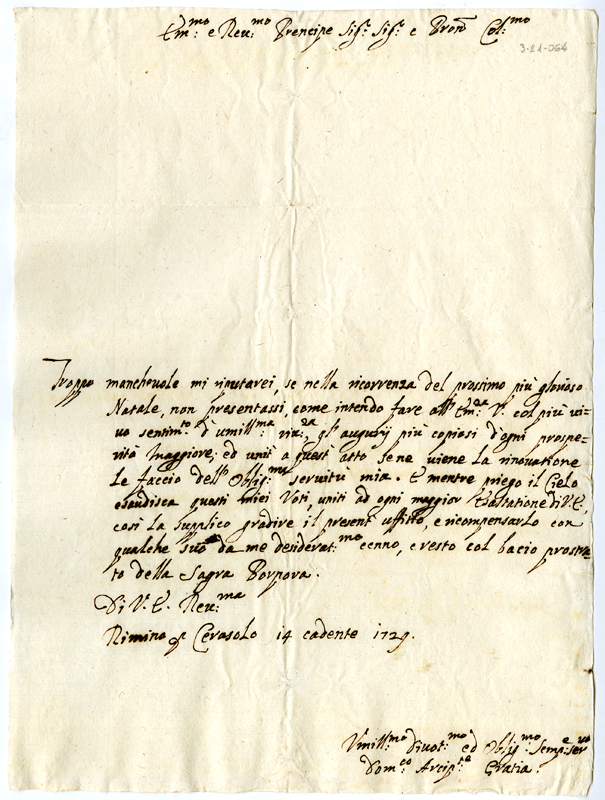 Em:mo e Reu:mo Prencipe Sig:r Sig:r e Pron Col:mo
3-11-064
Troppo mancheuole mi riputarei, se nella ricorrenza del prossimo più glorioso
Natale, non presentassi, come intendo fare all' Em:za V. col più ui-
uo sentim:to d'umill:ma riu:za, gl'augurij più copiosi d'ogni prospe-
rità maggiore; ed uniti a quest'atto se ne uiene la rinouatione
Le faccio dell' Oblig:ma seruitù mia. E mentre priego il Cielo
esaudisca questi miei Voti, uniti ad ogni maggior Esaltatione di V. E.,
così la supplico gradire il present' uffitio, e ricompensarlo con
qualche suo da me desiderat:mo cenno, e resto col bacio prostra-
to della Sagra Porpora.
Di V. E. Reu:ma
Rimino Cerasolo 14 cadente 1729.
Vmill:mo Diuot:mo ed Oblig:mo Semp:e Ser:uo
Dom:co Arcip:te